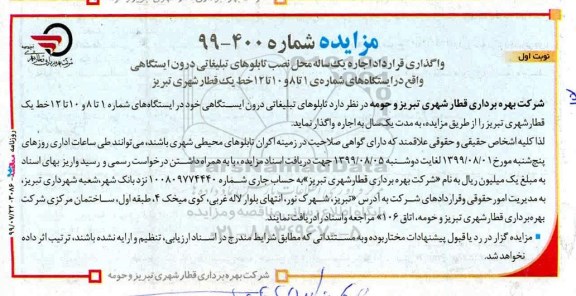 مزایده شماره ۴۰۰-۹۹
نوبت اول
واگذاری قرارداد اجاره یک ساله محل نصب تابلوهای تبلیغاتی درون ایستگاهی
واقع در ایستگاه‌های شماره‌ی ۱ تا ۸ و ۱۰ تا ۱۲ خط یک قطار شهری تبریز
شرکت بهره برداری قطار شهری تبریز و حومه در نظر دارد تابلوهای تبلیغاتی درون ایستگاهی خود در ایستگاه‌های شماره ۱ تا ۸ و ۱۰ تا ۱۲ خط یک
قطار شهری تبریز را از طریق مزایده، به مدت یک سال به اجاره واگذار نماید.
لذا کلیه اشخاص حقیقی و حقوقی علاقمند که دارای گواهی صلاحیت در زمینه اکران تابلوهای محیطی شهری باشند، می‌توانند طی ساعات اداری روزهای
پنج‌شنبه مورخ ۱۳۹۹/۰۸/۰۱ لغایت دوشنبه ۱۳۹۹/۰۸/۰۵ جهت دریافت اسناد مزایده، با به همراه داشتن درخواست رسمی و رسید واریز بهای اسناد
به مبلغ یک میلیون ریال به نام «شرکت بهره برداری قطار شهری تبریز» به حساب جاری شماره ۱۰۰۸۰۹۷۷۴۴۴۰ نزد بانک شهر، شعبه شهرداری تبریز،
به مدیریت امور حقوقی و قراردادهای شرکت به آدرس «تبریز، شهرک نور، انتهای بلوار لاله غربی، کوی میخک ۴، طبقه اول، ساختمان مرکزی شرکت
بهره‌برداری قطار شهری تبریز و حومه، اتاق ۱۰۶» مراجعه و اسناد را دریافت نمایند.
■ مزایده گزار در رد یا قبول پیشنهادات مختار بوده و به مستنداتی که مطابق شرایط مندرج در اسناد ارزیابی، تنظیم و ارایه نشده باشند، ترتیب اثر داده
نخواهد شد.
شرکت بهره برداری قطار شهری تبریز و حومه